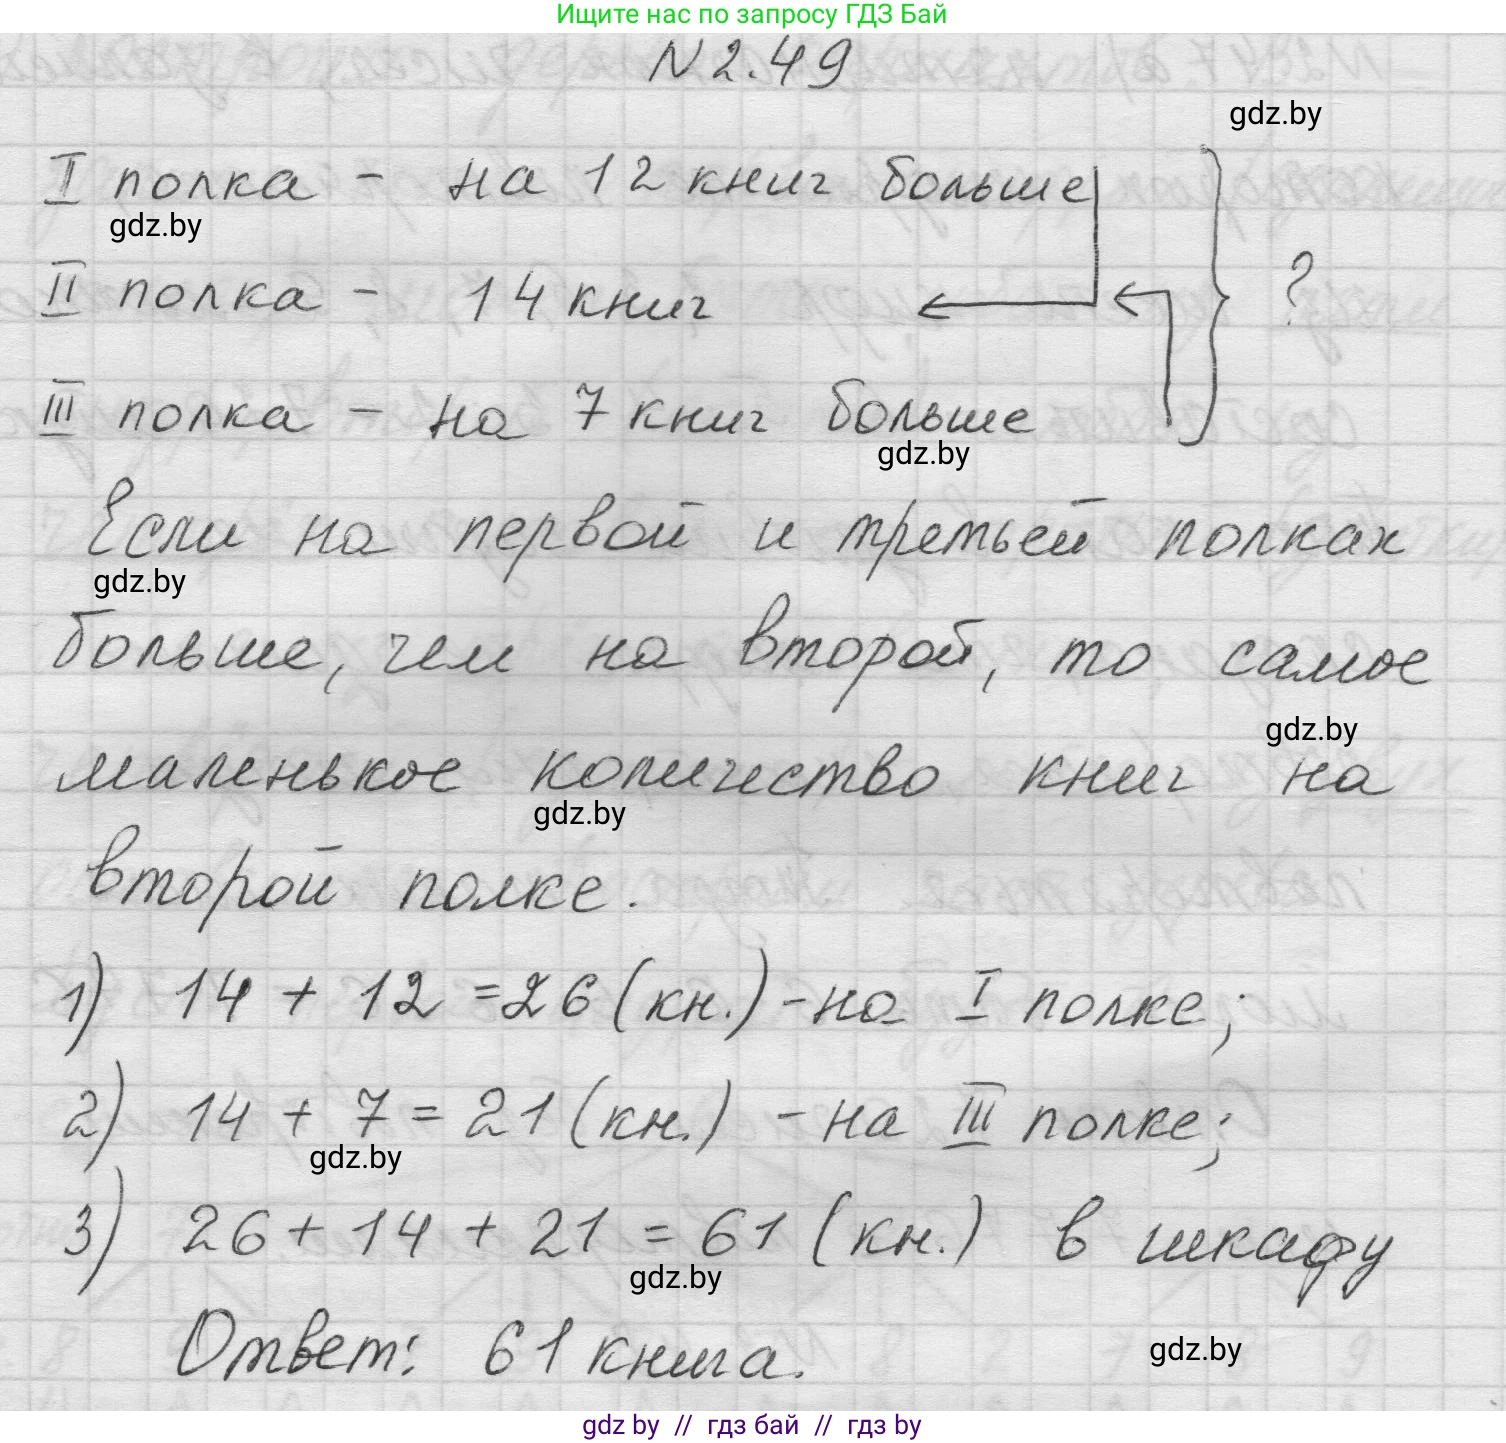 Ищите нас по запросу ГДЗ Бай
N 2.49
gdz.by
I полка - на 12 книг больше
gdz.by
II полка - 14 книг
?
III полка - на 7 книг больше
gdz.by
Если на первой и третьей полках
gdz.by
больше, чем на второй, то самое
gdz.by
маленькое количество книг на
gdz.by
второй полке.
1) 14 + 12 = 26 (кн.) - на I полке;
2) 14 + 7 = 21 (кн.) - на III полке;
gdz.by
3) 26 + 14 + 21 = 61 (кн.) в шкафу
gdz.by
Ответ: 61 книга.
gdz.by
gdz by // гдз бай // гдз by